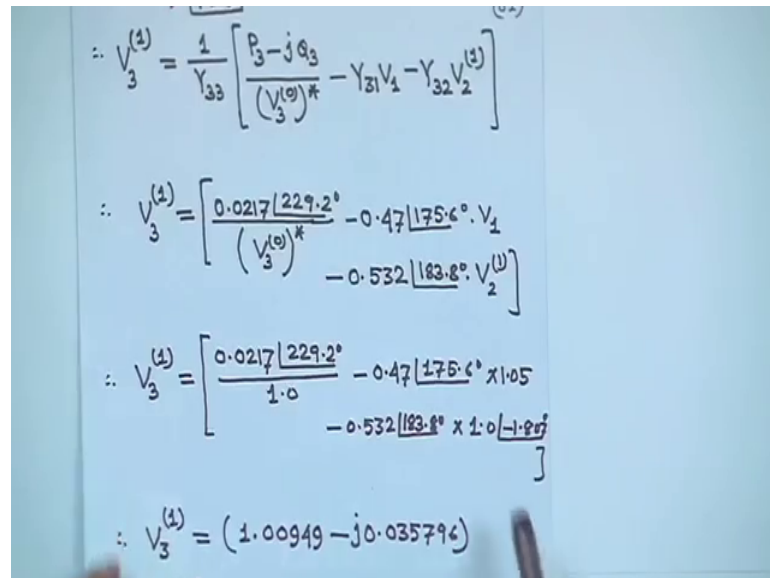 ∴ V₃⁽¹⁾ = 1/Y₃₃ [ (P₃ - jQ₃)/(V₃⁽⁰⁾)* - Y₃₁V₁ - Y₃₂V₂⁽¹⁾ ]
∴ V₃⁽¹⁾ = [ 0.0217∠229.2°/(V₃⁽⁰⁾)* - 0.47∠175.6°. V₁
- 0.532∠183.8°. V₂⁽¹⁾ ]
∴ V₃⁽¹⁾ = [ 0.0217∠229.2°/1.0 - 0.47∠175.6° x1.05
- 0.532∠183.8° x 1.0
]
∴ V₃⁽¹⁾ = (1.00949 - j0.035796)